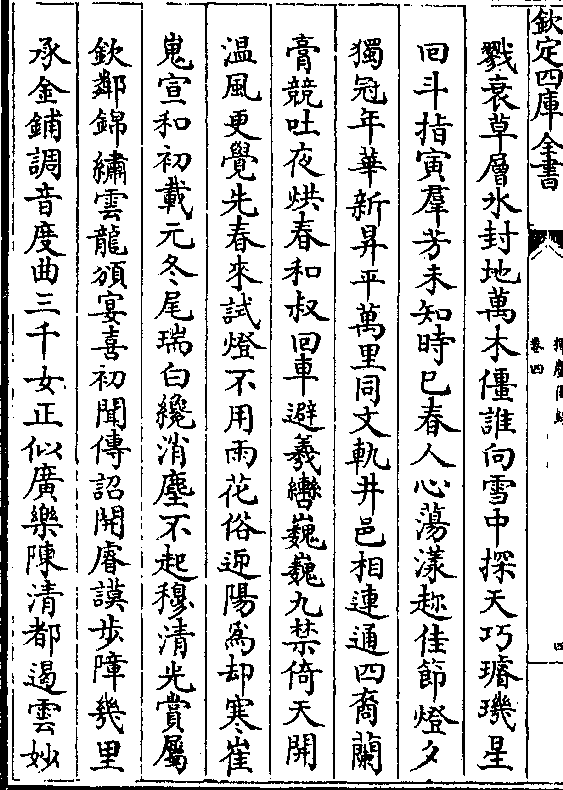 欽定四庫全書
卷四
四
戮衰草層氷封地萬木僵誰向雪中探天巧璿璣星
回斗指寅羣芳未知時已春人心蕩漾趂佳節燈夕
獨冠年華新昇平萬里同文軌井邑相連通四裔蘭
膏競吐夜烘春和叔回車避羲轡巍巍九禁倚天開
温風更覺先春來試燈不用雨花俗迎陽爲却寒崔
嵬宣和初載元冬尾瑞白纔消塵不起穆清光賞屬
欽鄰錦繡雲龍頒宴喜初聞傳詔開睿謨步障幾里
承金鋪調音度曲三千女正似廣樂陳清都遏雲妙